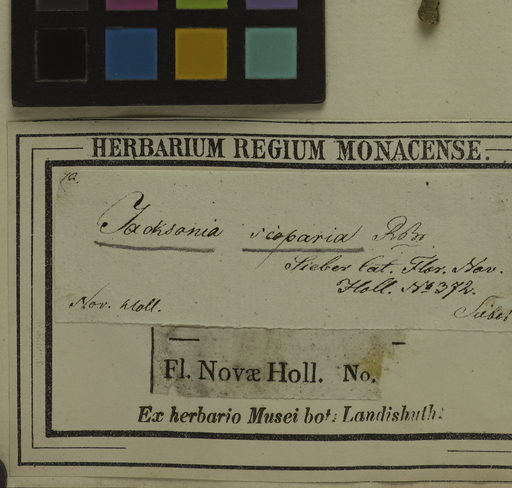 HERBARIUM REGIUM MONACENSE.
Jacksonia scoparia RBr.
Sieber Cat. Flor. Nov.
Holl. No 372.
Nov. Holl.
Fl. Novæ Holl. No.
Ex herbario Musei bot: Landishuth: